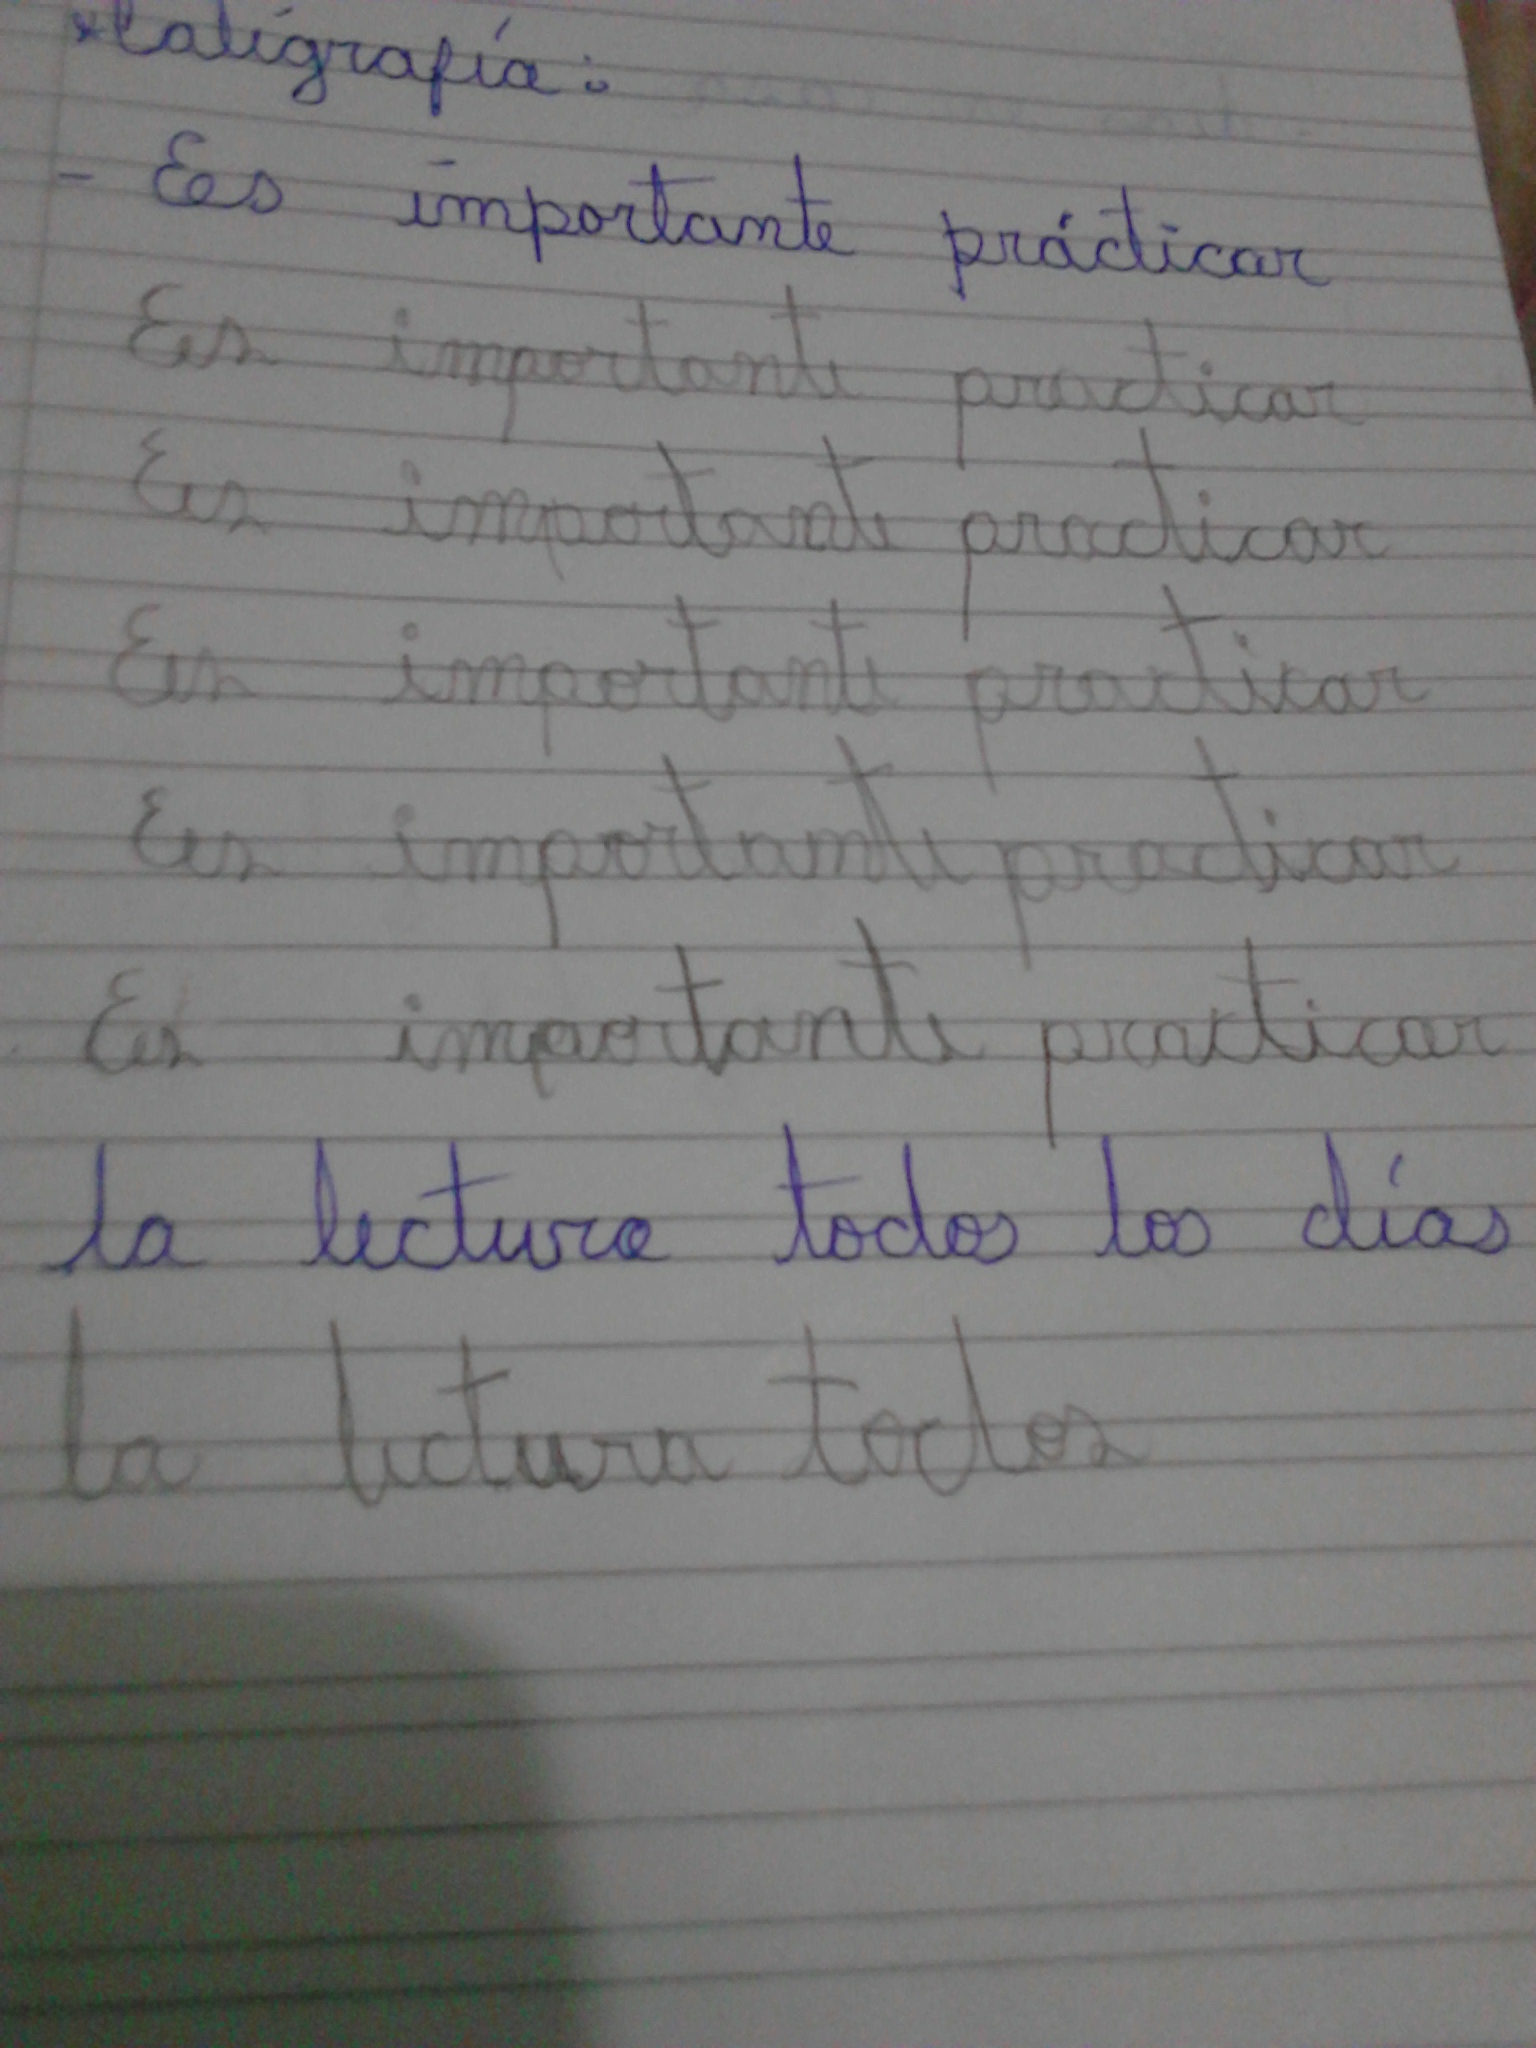 *Caligrafía:
- Es importante prácticar
Es importante practicar
Es importante practicar
Es importante practicar
Es importante practicar
Es importante practicar
la lectura todos los días
la lectura todos